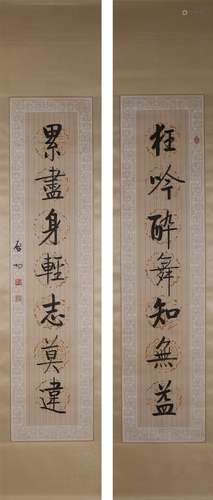 狂吟醉舞知無益
累盡身輕志莫違
啟功